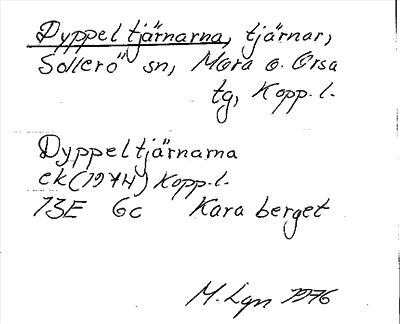 Dyppeltjärnarna, tjärnar,
Sollerö sn, Mora o. Orsa
tg, Kopp. l.
Dyppeltjärnarna
ek (1974) Kopp. l.
13E 6c Kara berget
M. Lgn 1976